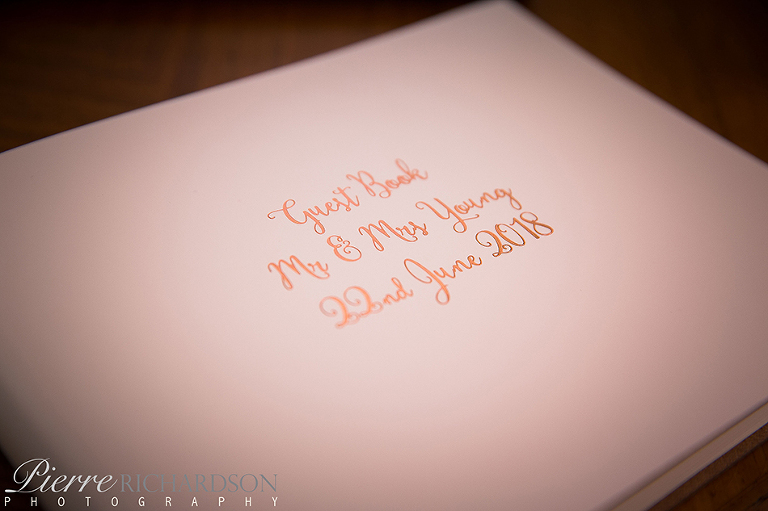 Guest Book
Mr & Mrs Young
22nd June 2018
Pierre RICHARDSON
PHOTOGRAPHY